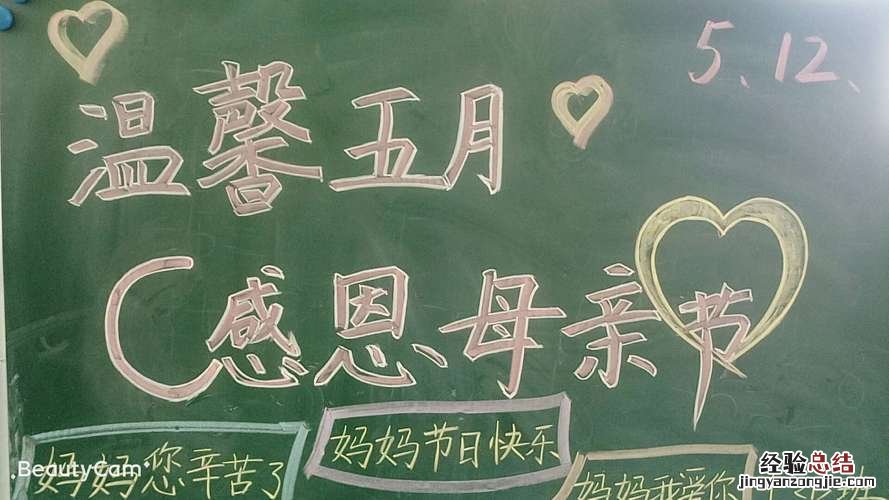 5、12、
温馨五月
感恩母亲节
妈妈节日快乐
妈妈您辛苦了
妈妈我爱你
BeautyCam
经验总结
jingyanzongjie.com